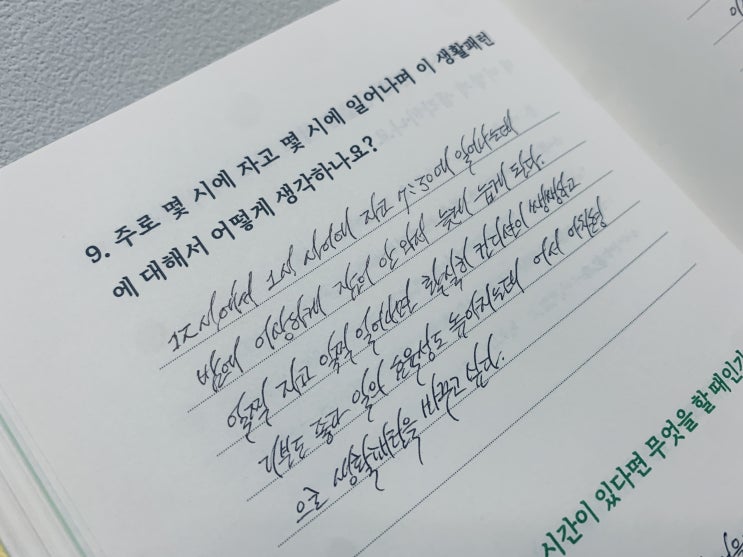 9. 주로 몇 시에 자고 몇 시에 일어나며 이 생활패턴
에 대해서 어떻게 생각하나요?
12시에서 1시 사이에 자고 7:30에 일어나는데
밤에 이상하게 잠이 안 와서 늦게 눕게 된다.
일찍 자고 일찍 일어나면 확실히 컨디션이 쌩쌩하고
기분도 좋다 일의 효율성도 높아지는데 어서 아침형
으로 생활패턴을 바꾸고 싶다.
시간이 있다면 무엇을 할 때인가